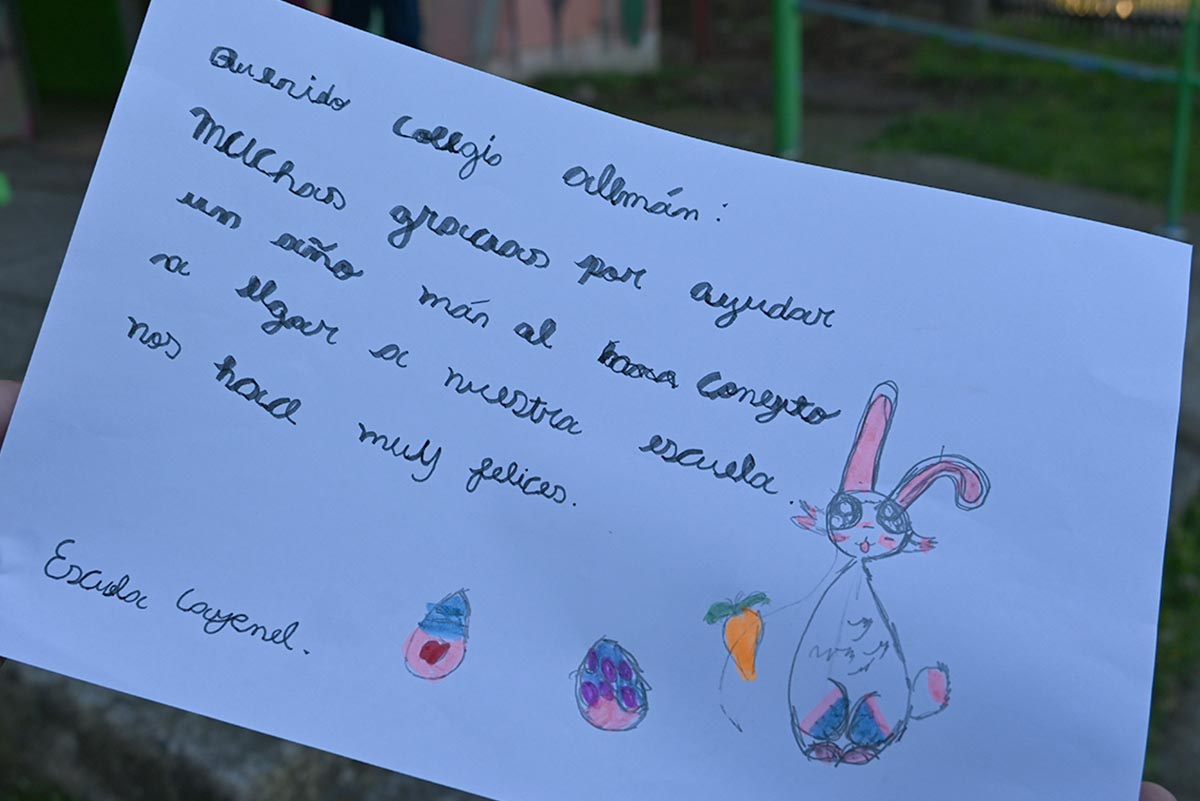 Querido Colegio alemán:
Muchas gracias por ayudar
un año más al conejito
a llegar a nuestra escuela.
nos hace muy felices.
Escuela Cayenel.